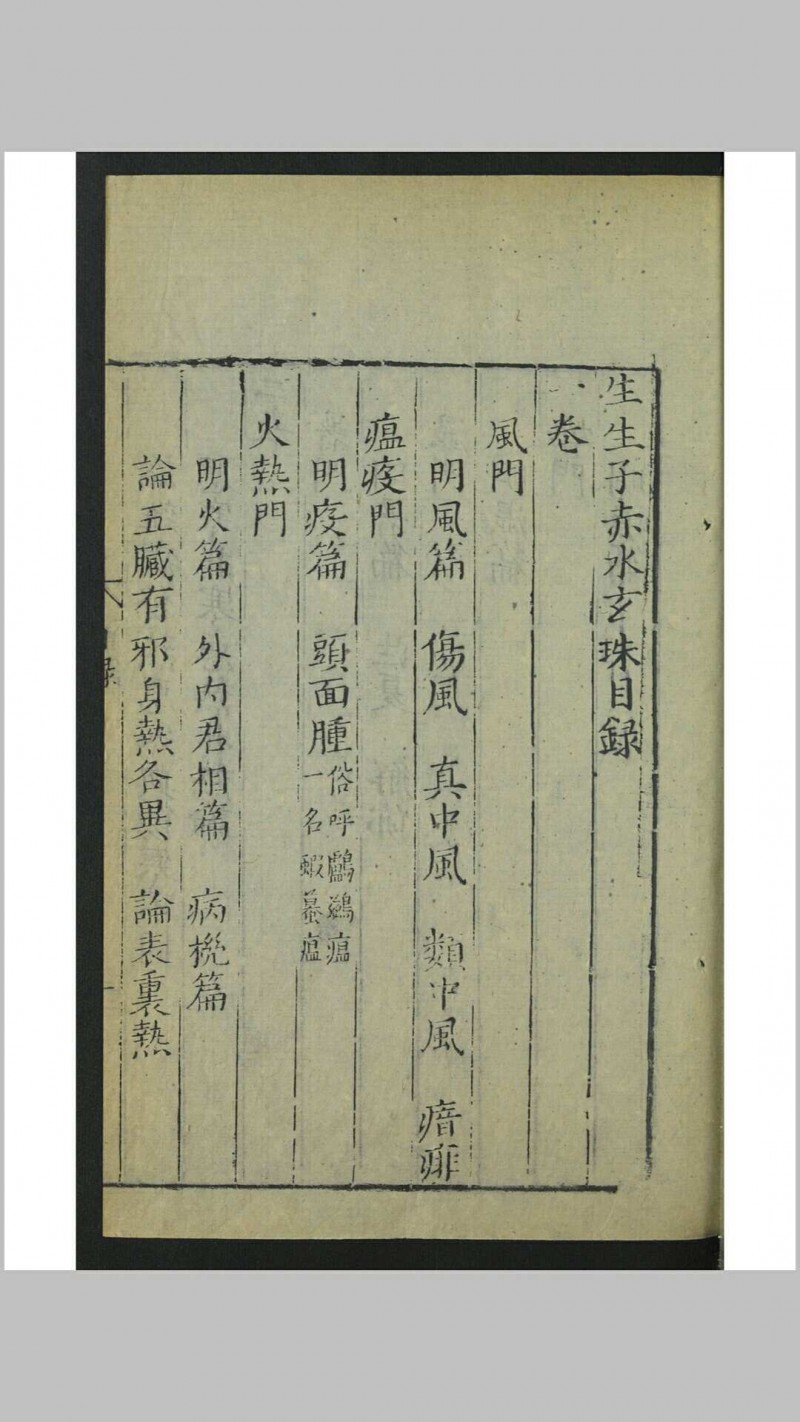 生生子赤水玄珠目録
一卷
風門
明風篇　傷風　真中風　類中風　瘖痱
瘟疫門
明疫篇　頭面腫　俗呼鸕鷀瘟
一名蝦蟇瘟
火熱門
明火篇　外内君相篇　病機篇
論五臟有邪身熱各異　論表裏熱